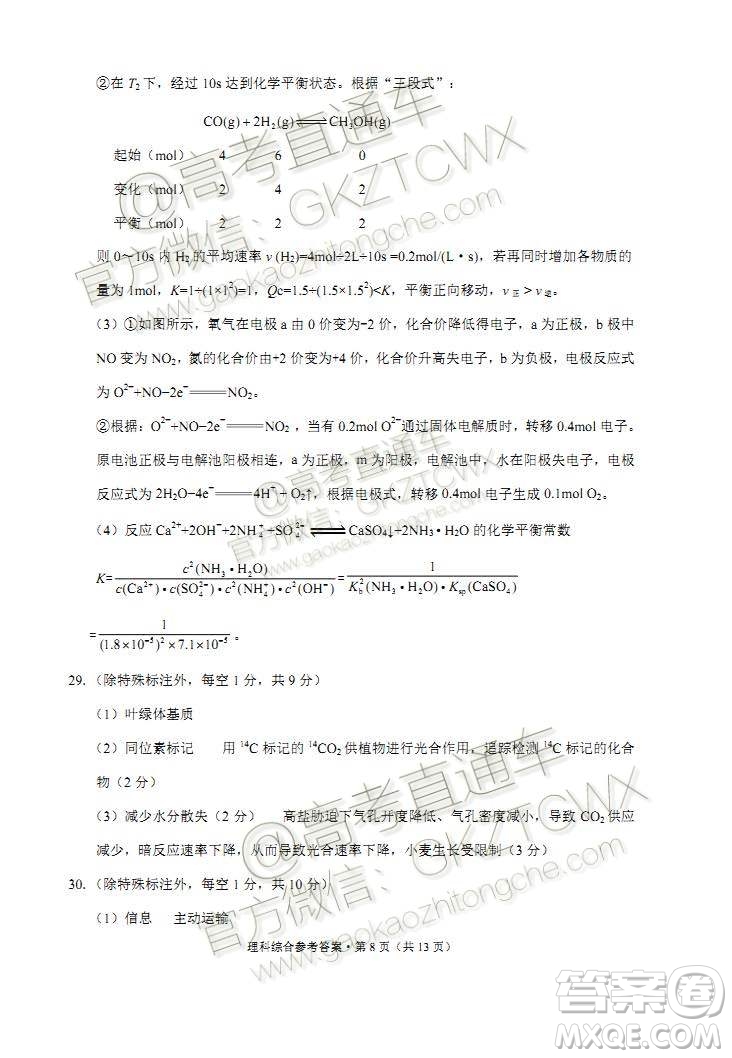 ②在 T₂ 下，经过 10s 达到化学平衡状态。根据“三段式”：
CO(g)＋2H₂(g)⇌CH₃OH(g)
起始（mol） 4 6 0
变化（mol） 2 4 2
平衡（mol） 2 2 2
则 0～10s 内 H₂ 的平均速率 v (H₂)=4mol÷2L÷10s =0.2mol/(L・s)，若再同时增加各物质的
量为 1mol，K=1÷(1×1²)=1，Qc=1.5÷(1.5×1.5²)<K，平衡正向移动，v正＞v逆。
（3）①如图所示，氧气在电极 a 由 0 价变为−2 价，化合价降低得电子，a 为正极，b 极中
NO 变为 NO₂，氮的化合价由+2 价变为+4 价，化合价升高失电子，b 为负极，电极反应式
为 O²⁻+NO−2e⁻═══NO₂。
②根据：O²⁻+NO−2e⁻═══NO₂ ，当有 0.2mol O²⁻通过固体电解质时，转移 0.4mol 电子。
原电池正极与电解池阳极相连，a 为正极，m 为阳极，电解池中，水在阳极失电子，电极
反应式为 2H₂O−4e⁻═══4H⁺ + O₂↑，根据电极式，转移 0.4mol 电子生成 0.1mol O₂。
（4）反应 Ca²⁺+2OH⁻+2NH₄⁺+SO₄²⁻⇌CaSO₄↓+2NH₃・H₂O 的化学平衡常数
K=c²(NH₃・H₂O)/[c(Ca²⁺)・c(SO₄²⁻)・c²(NH₄⁺)・c²(OH⁻)]=1/[K_b²(NH₃・H₂O)・K_sp(CaSO₄)]
=1/[(1.8×10⁻⁵)²×7.1×10⁻⁵] 。
29.（除特殊标注外，每空 1 分，共 9 分）
（1）叶绿体基质
（2）同位素标记 用 ¹⁴C 标记的 ¹⁴CO₂ 供植物进行光合作用，追踪检测 ¹⁴C 的化合
物（2 分）
（3）减少水分散失（2 分） 高盐胁迫下气孔开度降低、气孔密度减小，导致 CO₂ 供应
减少，暗反应速率下降，从而导致光合速率下降，小麦生长受限制（3 分）
30.（除特殊标注外，每空 1 分，共 10 分）
（1）信息 主动运输
理科综合参考答案・第 8 页（共 13 页）
@高考直通车
官方微信：GKZTCWX
www.gaokaozhitongche.com
@高考直通车
官方微信：GKZTCWX
www.gaokaozhitongche.com
答案卷
MXQE.COM